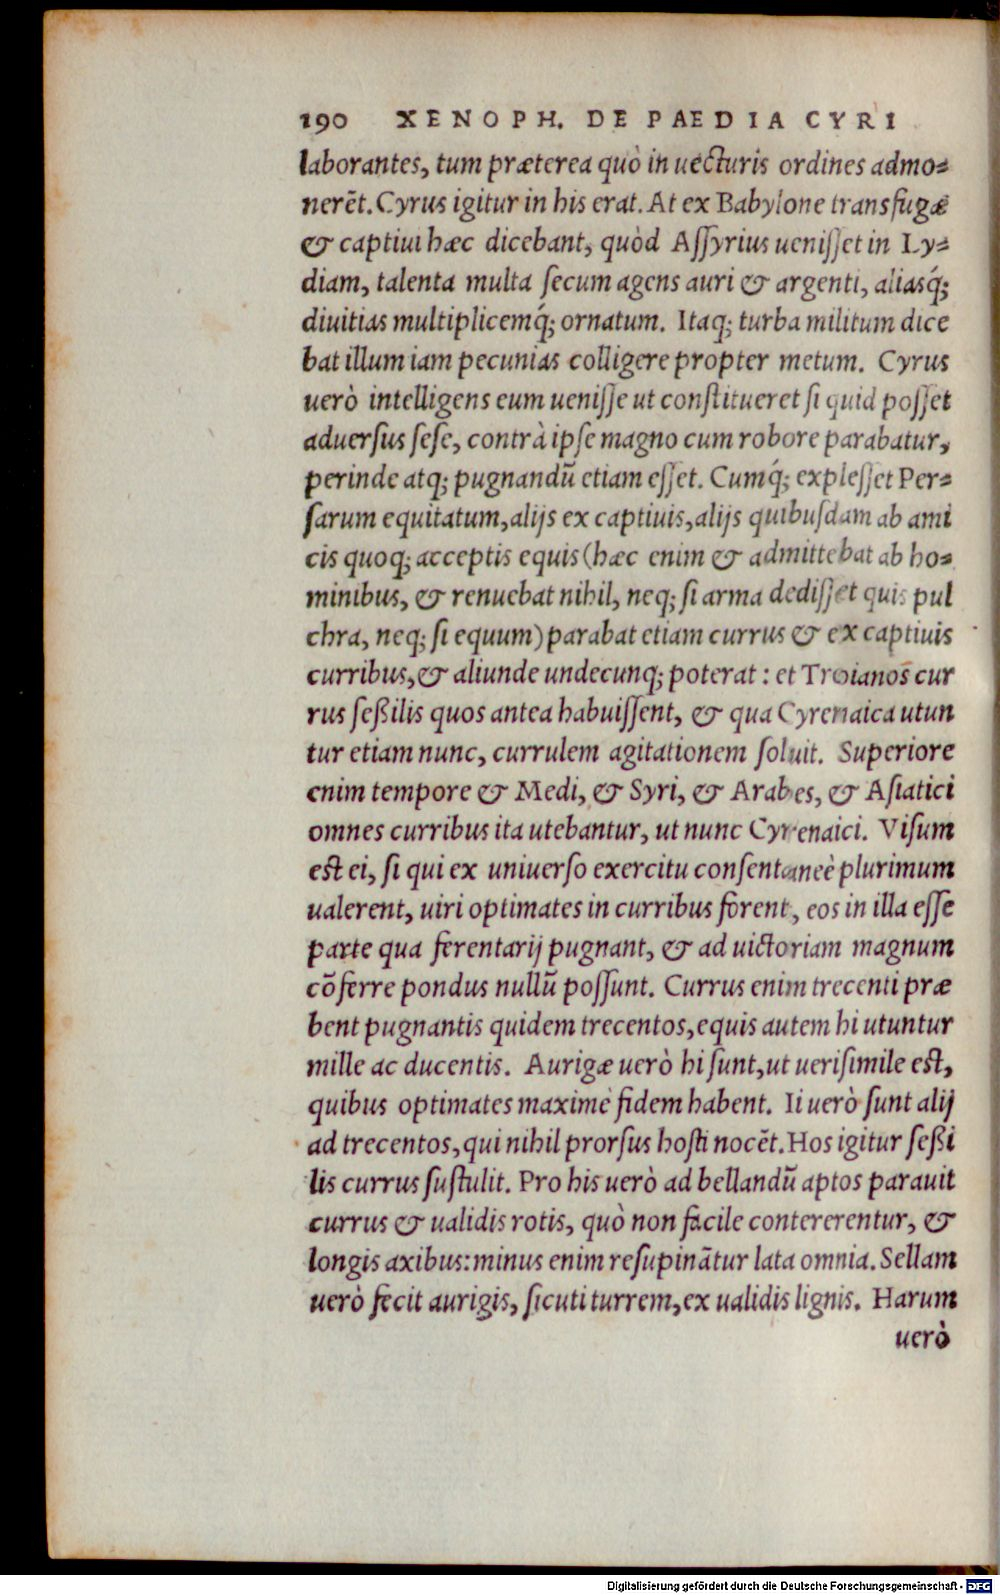 190 XENOPH. DE PAEDIA CYRI
laborantes, tum præterea quò in uecturis ordines admo⸗
nerẽt. Cyrus igitur in his erat. At ex Babylone transfugæ
& captiui hæc dicebant, quòd Aſſyrius ueniſſet in Ly⸗
diam, talenta multa ſecum agens auri & argenti, aliasq́;
diuitias multiplicemq́; ornatum. Itaq; turba militum dice
bat illum iam pecunias colligere propter metum. Cyrus
uerò intelligens eum ueniſſe ut conſtitueret ſi quid poſſet
aduerſus ſeſe, contrà ipſe magno cum robore parabatur,
perinde atq; pugnandũ etiam eſſet. Cumq́; expleſſet Per⸗
ſarum equitatum, alijs ex captiuis, alijs quibuſdam ab ami
cis quoq; acceptis equis (hæc enim & admittebat ab ho⸗
minibus, & renuebat nihil, neq; ſi arma dediſſet quis pul
chra, neq; ſi equum) parabat etiam currus & ex captiuis
curribus, & aliunde undecunq; poterat : et Troianos cur
rus ſeßilis quos antea habuiſſent, & qua Cyrenaica utun
tur etiam nunc, currulem agitationem ſoluit. Superiore
enim tempore & Medi, & Syri, & Arabes, & Aſiatici
omnes curribus ita utebantur, ut nunc Cyrenaici. Viſum
est ei, ſi qui ex uniuerſo exercitu conſentaneè plurimum
ualerent, uiri optimates in curribus forent, eos in illa eſſe
parte qua ferentarij pugnant, & ad uictoriam magnum
cõferre pondus nullũ poſſunt. Currus enim trecenti præ
bent pugnantis quidem trecentos, equis autem hi utuntur
mille ac ducentis. Aurigæ uerò hi ſunt, ut ueriſimile est,
quibus optimates maximè fidem habent. Ii uerò ſunt alij
ad trecentos, qui nihil prorſus hoſti nocẽt. Hos igitur ſeßi
lis currus ſuſtulit. Pro his uerò ad bellandũ aptos parauit
currus & ualidis rotis, quò non facile contererentur, &
longis axibus: minus enim reſupinãtur lata omnia. Sellam
uerò fecit aurigis, ſicuti turrem, ex ualidis lignis. Harum
uerò
Digitalisierung gefördert durch die Deutsche Forschungsgemeinschaft - DFG